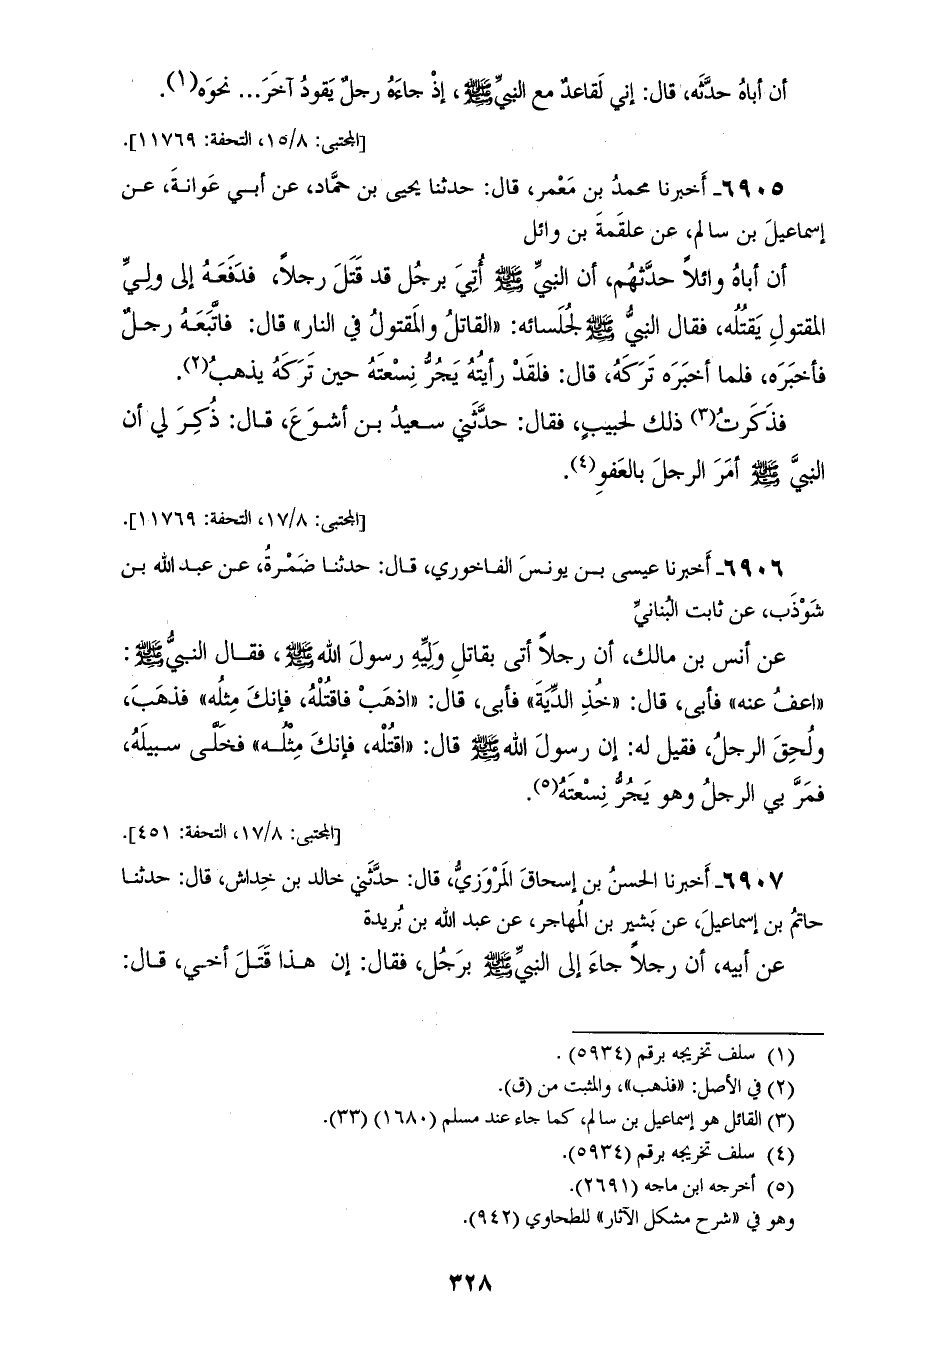 أن أباهُ حدَّثَه، قال: إني لَقاعدٌ مع النبيِّ ﷺ، إذْ جاءَهُ رجلٌ يَقودُ آخَرَ... نحوَه(١).
[المجتبى: ١٥/٨، التحفة: ١١٧٦٩].
٦٩٠٥ـ أَخبرنا محمدُ بن مَعْمر، قال: حدثنا يحيى بن حمَّاد، عن أبي عَوانةَ، عن
إسماعيلَ بن سالم، عن علقَمةَ بن وائل
أن أباهُ وائلاً حدَّثهُم، أن النبيَّ ﷺ أُتِيَ برجُل قد قَتَلَ رجلاً، فدَفَعَهُ إلى وليِّ
المقتولِ يَقتُلُه، فقال النبيُّ ﷺ لجُلَسائه: «القاتلُ والمَقتولُ في النار» قال: فاتَّبَعَهُ رجلٌ
فأخبَرَه، فلما أخبَرَه تَرَكَهُ، قال: فلقَدْ رأيتُهُ يَجُرُّ نِسْعتَهُ حين تَرَكَهُ يذهبُ(٢).
فذَكَرتُ(٣) ذلك لحبيبٍ، فقال: حدَّثَني سعيدُ بن أشوَعَ، قال: ذُكِرَ لي أن
النبيَّ ﷺ أمَرَ الرجلَ بالعَفوِ(٤).
[المجتبى: ١٧/٨، التحفة: ١١٧٦٩].
٦٩٠٦ـ أَخبرنا عيسى بن يونسَ الفاخوري، قال: حدثنا ضَمْرةُ، عن عبد الله بن
شَوْذَب، عن ثابت البُنانيِّ
عن أنس بن مالك، أن رجلاً أتى بقاتلِ وَلِيِّهِ رسولَ الله ﷺ، فقال النبيُّ ﷺ:
«اعفُ عنه» فأبى، قال: «خُذِ الدِّيَةَ» فأبى، قال: «اذهَبْ فاقتُلْهُ، فإنكَ مِثلُه» فذهَبَ،
ولُحِقَ الرجلُ، فقيل له: إن رسولَ الله ﷺ قال: «اقتُلْه، فإنكَ مِثْلُه» فخَلَّى سبيلَهُ،
فمَرَّ بي الرجلُ وهو يَجُرُّ نِسْعتَهُ(٥).
[المجتبى: ١٧/٨، التحفة: ٤٥١].
٦٩٠٧ـ أَخبرنا الحسنُ بن إسحاقَ المَرْوَزيُّ، قال: حدَّثَني خالد بن خِداش، قال: حدثنا
حاتمُ بن إسماعيلَ، عن بَشير بن المُهاجر، عن عبد الله بن بُريدة
عن أبيه، أن رجلاً جاءَ إلى النبيِّ ﷺ برَجُل، فقال: إن هذا قَتَلَ أخي، قال:
(١) سلف تخريجه برقم (٥٩٣٤) .
(٢) في الأصل: «فذهب»، والمثبت من (ق).
(٣) القائل هو إسماعيل بن سالم، كما جاء عند مسلم (١٦٨٠) (٣٣).
(٤) سلف تخريجه برقم (٥٩٣٤).
(٥) أخرجه ابن ماجه (٢٦٩١).
وهو في «شرح مشكل الآثار» للطحاوي (٩٤٢).
٣٢٨